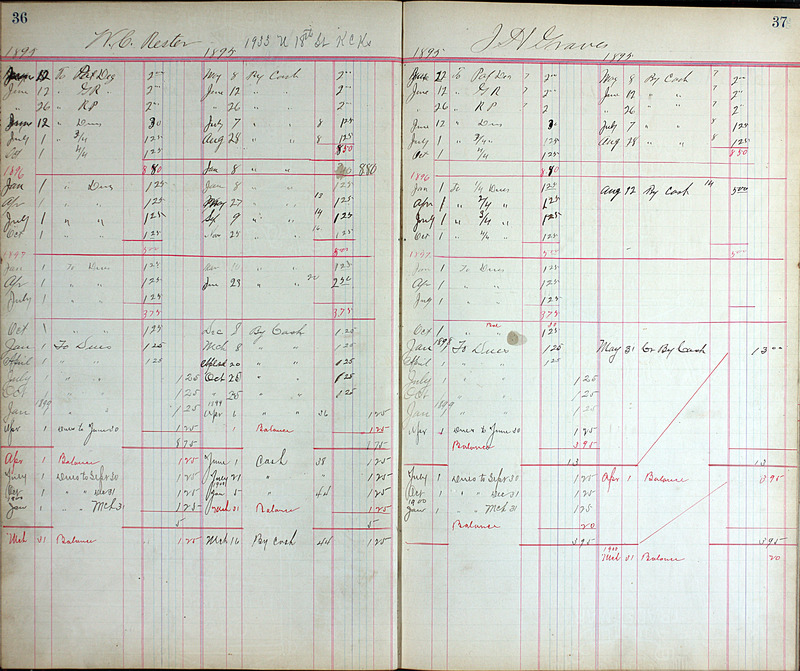 36
W.C. Rester 1933 N 18th St K C Ks
1895 1895
12 To Deg 2 00 May 8 By Cash 2 00
June 12 " G R 2 00 June 12 " " 2 00
" 26 " K P 2 00 " 26 " " 2 00
June 12 " Dues 30 July 7 " " 8 125
July 1 " 3/4 125 Aug 28 " " 8 125
Oct 1 " 4/4 125 850
1896 880 Jan 8 " " 880
Jan 1 " Dues 125 Jan 8 " " 125
Apr 1 " " 125 May 27 " " 125
July 1 " " 125 9 " " 14 125
Oct 1 " " 125 " " 125
500 500
1897
Jan 1 To Dues 125 " " 125
Apr 1 " " 125 Jun 23 " " 20 250
July 1 " " 125
375 375
Oct 1 " " 125 Dec 8 By Cash 125
Jan 1 To Dues 125 Mch 8 " " 125
April 1 " " 125 20 " " 125
July 1 " " 125 Oct 25 " " 125
Oct 1 " " 125 " 25 " " 125
Jan 1899 1 " " 125 1899 Apr 6 " " 36 125
Apr 1 Dues to June 30 125 1 Balance 125
875 875
Apr 1 Balance 125 June 1 Cash 38 125
July 1 Dues to Sept 30 125 July 21 " " 125
Oct 1 " " Dec 31 125 1900 Jan 5 " 44 125
1900 Jan 1 " " Mch 31 125 31 Balance 125
5 5
Mch 31 Balance 125 Mch 16 By Cash 44 125
37
J H Graves
1895 1895
22 To Deg 2 00 May 8 By Cash 2 00
June 12 " G R 2 00 June 12 " " 2 00
" 26 " K P 2 " 26 " " 2
June 12 " Dues 30 July 7 " " 8 125
July 1 " 3/4 " 125 Aug 28 " " 8 125
Oct 1 " 4/4 125 850
1896 880
Jan 1 To 1/4 Dues 125 Aug 12 By Cash 14 500
Apr 1 " 2/4 " 125
July 1 " 3/4 " 125
Oct 1 " 4/4 " 125
500
1897
Jan 1 To Dues 125
Apr 1 " " 125
July 1 " " 125
375 375
Oct 1 " " 125
Jan 1898 1 To Dues 125 May 31 By Cash 13 00
April 1 " " 125
July 1 " " 125
Oct 1 " " 125
Jan 1899 1 " " 125
Apr 1 Dues to June 30 125
Balance 395
13 13
July 1 Dues to Sept 30 125 Apr 1 Balance 395
Oct 1 " " Dec 31 125
1900 Jan 1 " " Mch 31 125
Balance 20
395 395
1900
Mch 31 Balance 20